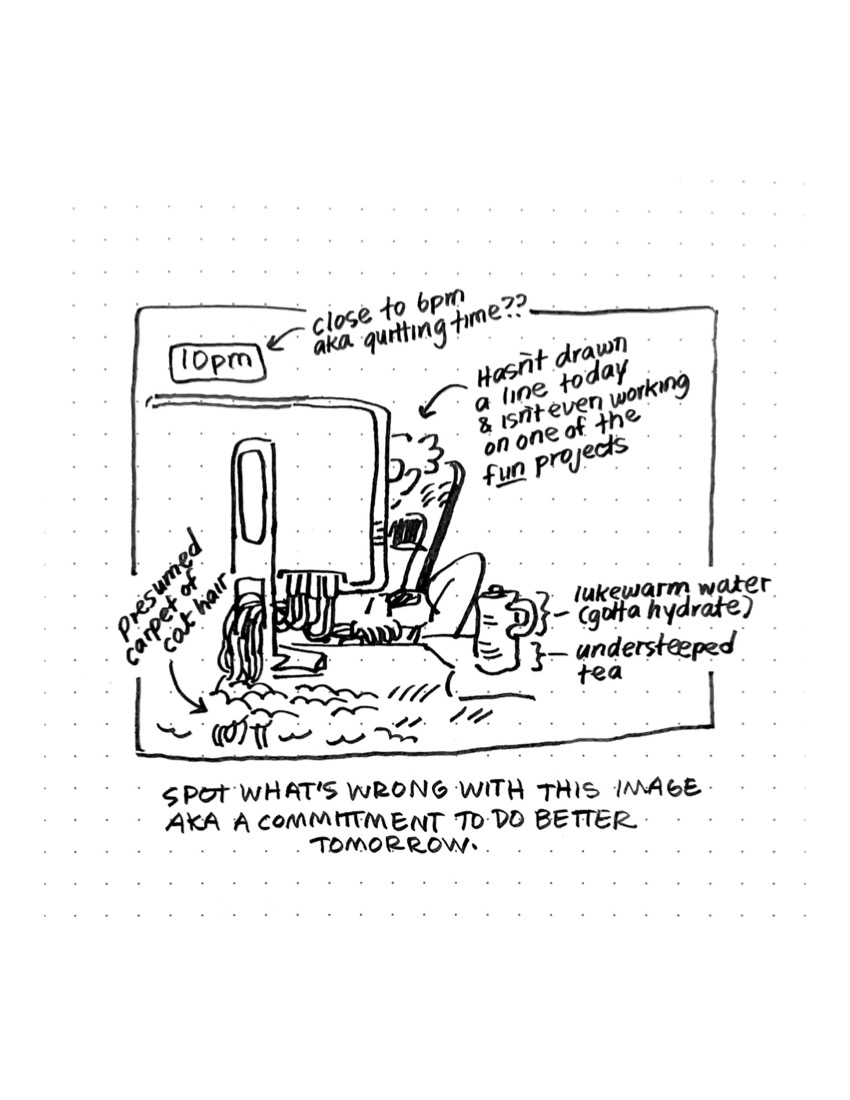 close to 6pm
aka quitting time??
10pm
Hasn't drawn
a line today
& isn't even working
on one of the
fun projects
presumed
carpet of
cat hair
lukewarm water
(gotta hydrate)
understeeped
tea
SPOT WHAT'S WRONG WITH THIS IMAGE
AKA A COMMITMENT TO DO BETTER
TOMORROW.